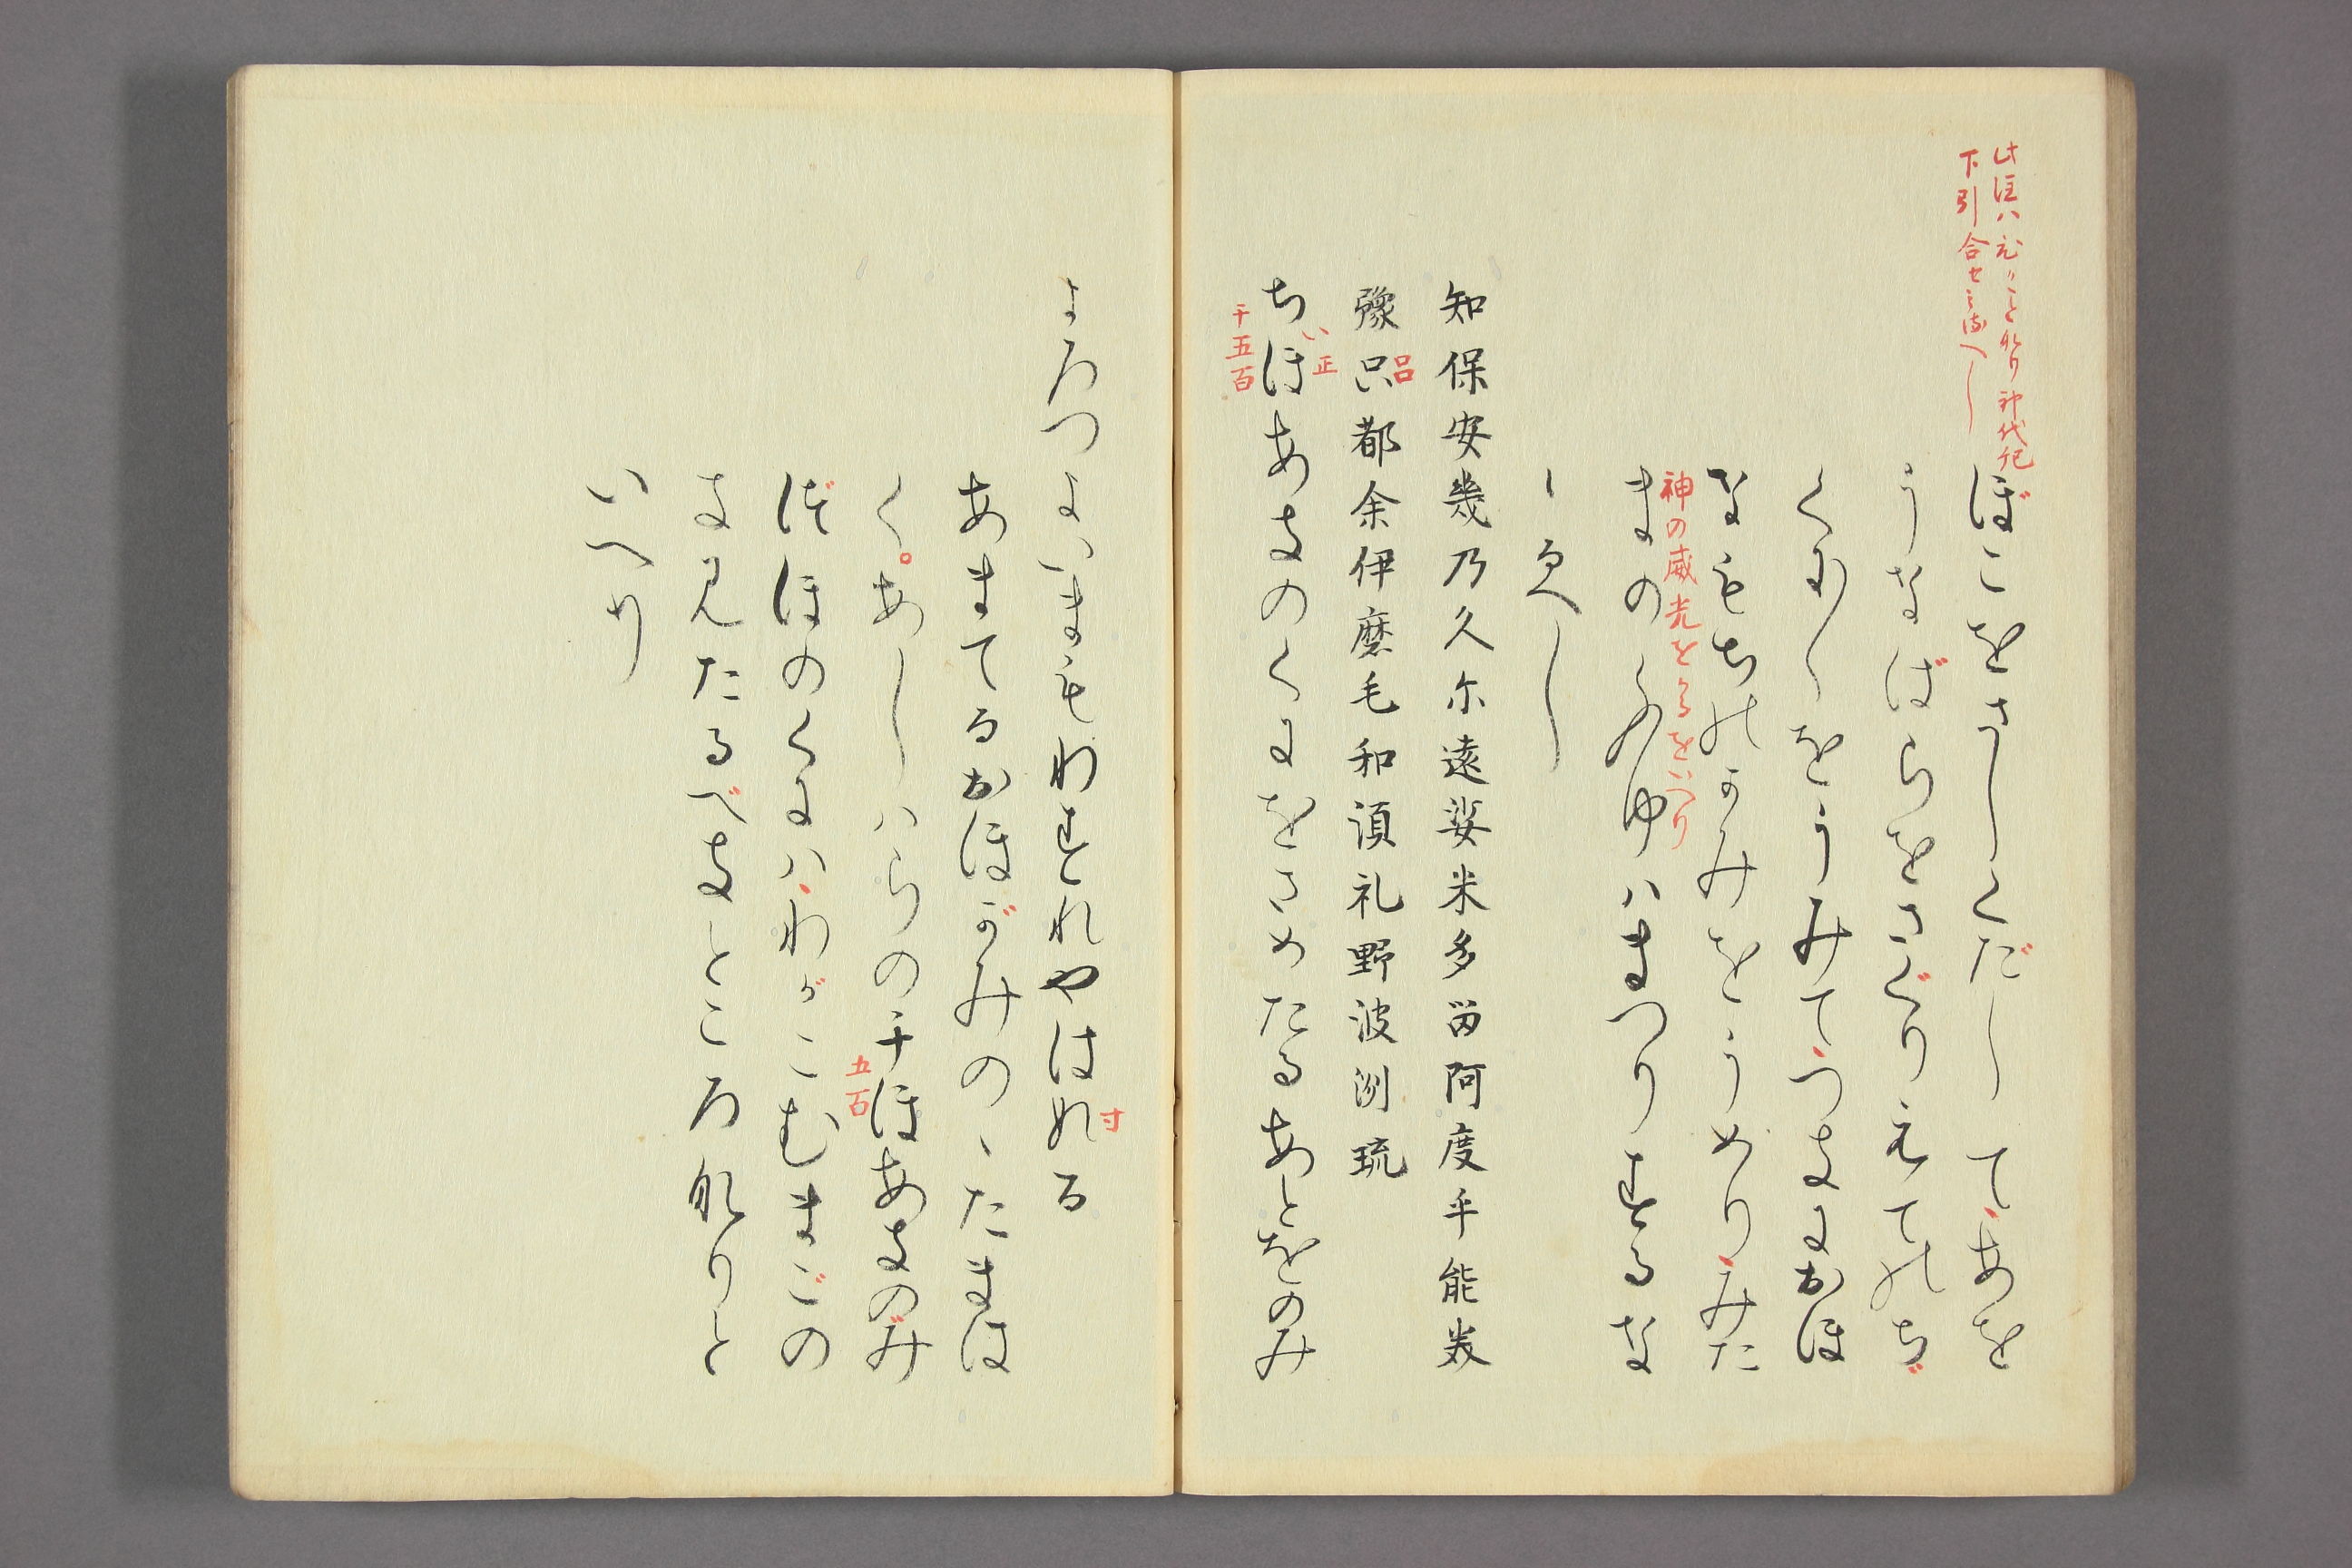 此注ハひがことなり神代紀
下引合セみるべし
ぼこをさしくだして、あを
うなばらをさぐりえてのち
くに〳〵をうみて、つきにおほ
なむちのかみをうめり、みた
神の威光をみるをいへり
まのふゆはまつりするな
るべし
知保安幾乃久尓遠娑米多留阿度乎能美
豫呂都余伊麿毛和湏礼野波洌琉
呂
ちほあきのくにをさめたるあとをのみ
い 正
千五百
よろつよいまもわすれやはぬる
す
あまてるおほがみの、たまは
く。あしはらの千ほあきのみ
五百
づほのくにハ、わがこむまごの
きみたるべきところなりと
いへり